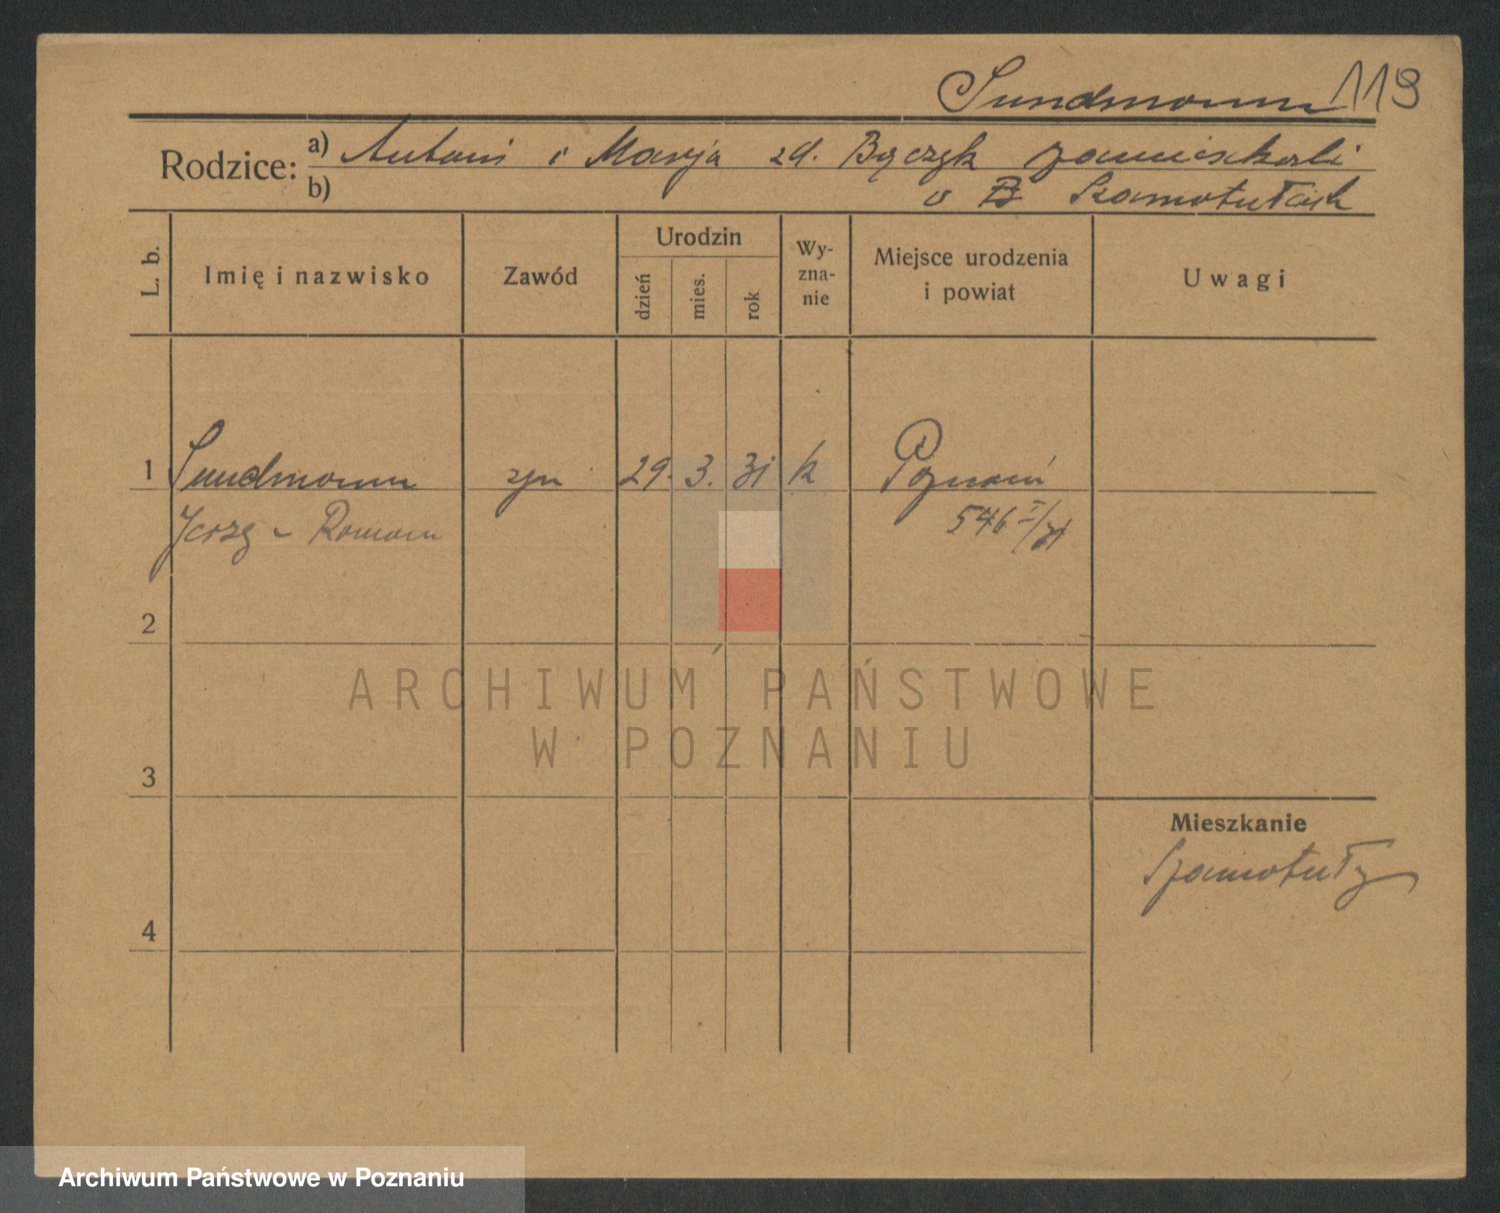 Sundmann 119
Rodzice: a) Antoni i Marja zd. Bączyk zamieszkali
b) w B Szamotułach
L. b.
Imię i nazwisko
Zawód
Urodzin
dzień
mies.
rok
Wy-
zna-
nie
Miejsce urodzenia
i powiat
Uwagi
1 Sundmann syn 29. 3. 31 k Poznań
Jerzy - Roman 546 I/31
2
ARCHIWUM PAŃSTWOWE
W POZNANIU
3
Mieszkanie
Szamotuły
4
Archiwum Państwowe w Poznaniu